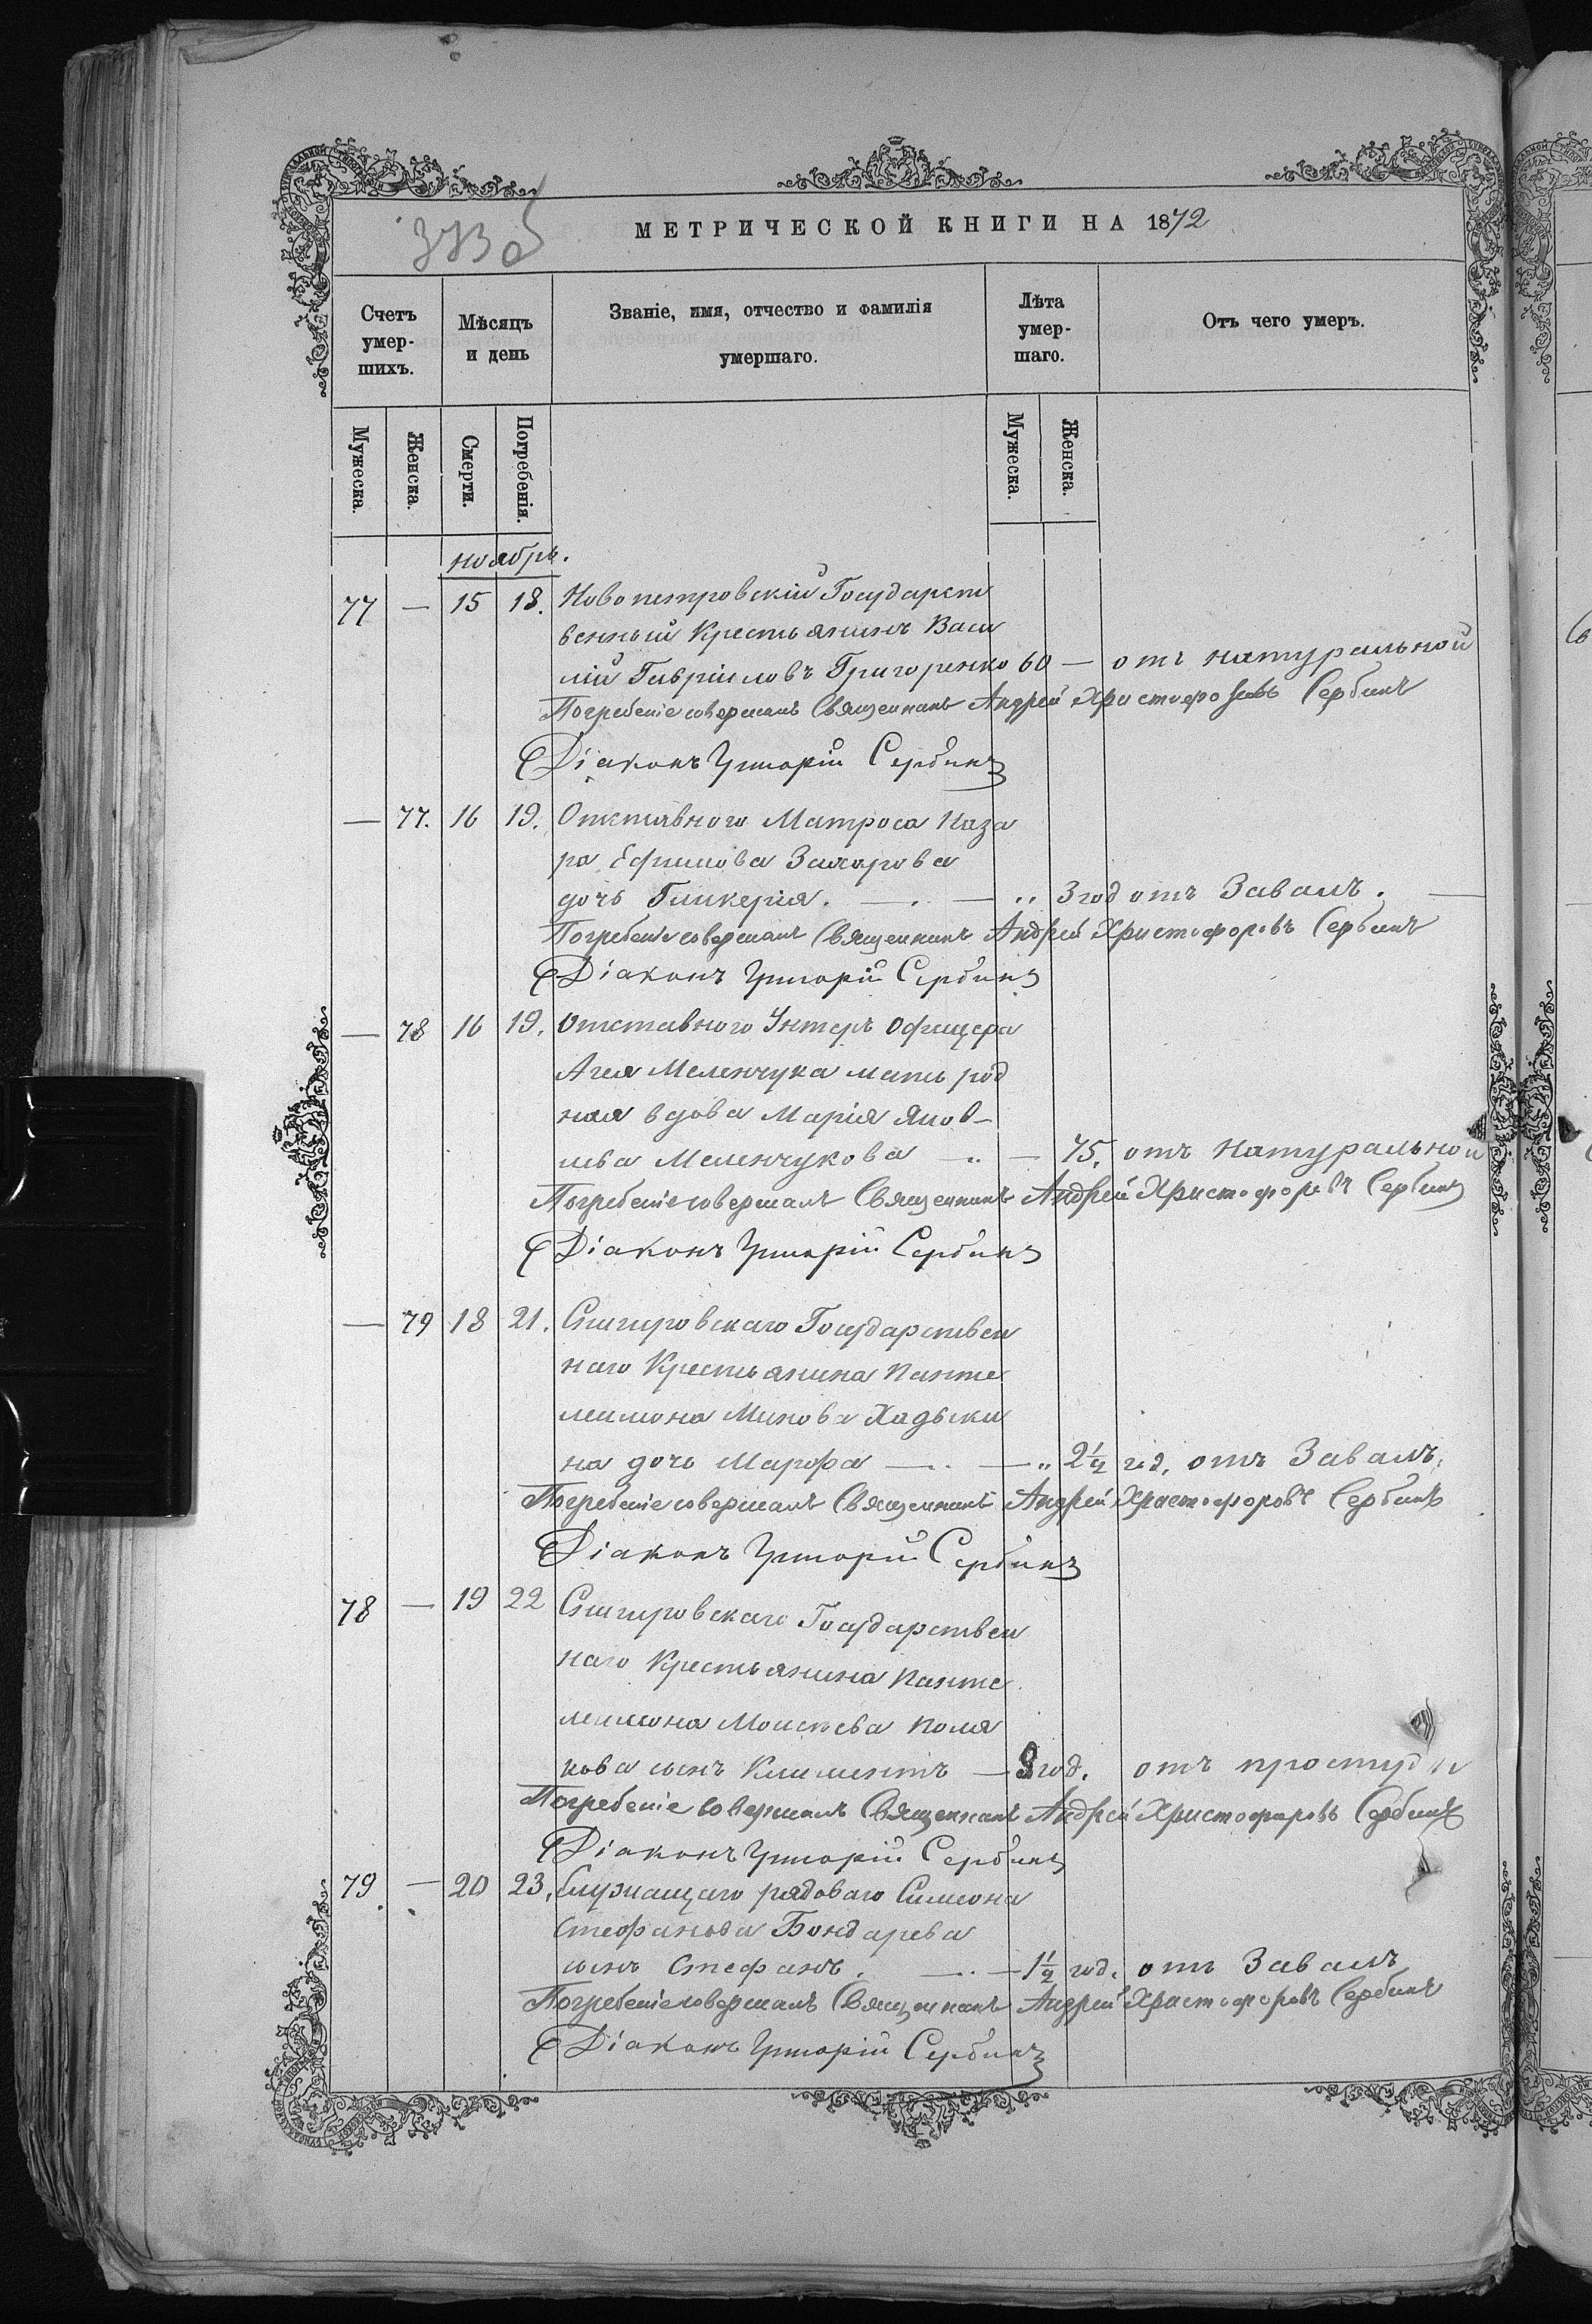 373 об
МЕТРИЧЕСКОЙ КНИГИ НА 1872
Счетъ умер-шихъ.
Мѣсяцъ и день
Званіе, имя, отчество и фамилія умершаго.
Лѣта умер-шаго.
Отъ чего умеръ.
Мужеска. Женска. Смерти. Погребенія. Мужеска. Женска.
ноябрь.
77 — 15 18. Новопетровскій Государст
венный Крестьянинъ Васи
лій Гавріиловъ Григоренко 60 — отъ натуральной
Погребеніе совершалъ Священникъ Андрей Христофоровъ Сербинъ
Діаконъ Григорій Сербинъ
— 77. 16 19. Отставного Матроса Наза
ра Ефимова Захарова
дочь Гликерія. — .. — „ 3 год отъ Завалъ. —
Погребеніе совершалъ Священникъ Андрей Христофоровъ Сербинъ
Діаконъ Григорій Сербинъ
— 78 16 19. Отставного Унтеръ Офицера
Агея Меленчука мать род
ная вдова Марія Яков-
лева Меленчукова — .. — 75. отъ натуральной
Погребеніе совершалъ Священникъ Андрей Христофоровъ Сербинъ
Діаконъ Григорій Сербинъ
— 79 18 21. Снигировскаго Государствен
наго Крестьянина Панте
леимона Минова Хадыки
на дочь Марфа — .. — „ 2½ год. отъ Завалъ.
Погребеніе совершалъ Священникъ Андрей Христофоровъ Сербинъ
Діаконъ Григорій Сербинъ
78 — 19 22 Снигировскаго Государствен
наго Крестьянина Панте
леимона Моисѣева Поля
кова сынъ Климентъ — год. отъ простуды
Погребеніе совершалъ Священникъ Андрей Христофоровъ Сербинъ
Діаконъ Григорій Сербинъ
79. — 20 23. Служащаго рядоваго Симеона
Стефанова Бондарева
сынъ Стефанъ. — .. — 1½ год. отъ Завалъ
Погребеніе совершалъ Священникъ Андрей Христофоровъ Сербинъ
Діаконъ Григорій Сербинъ